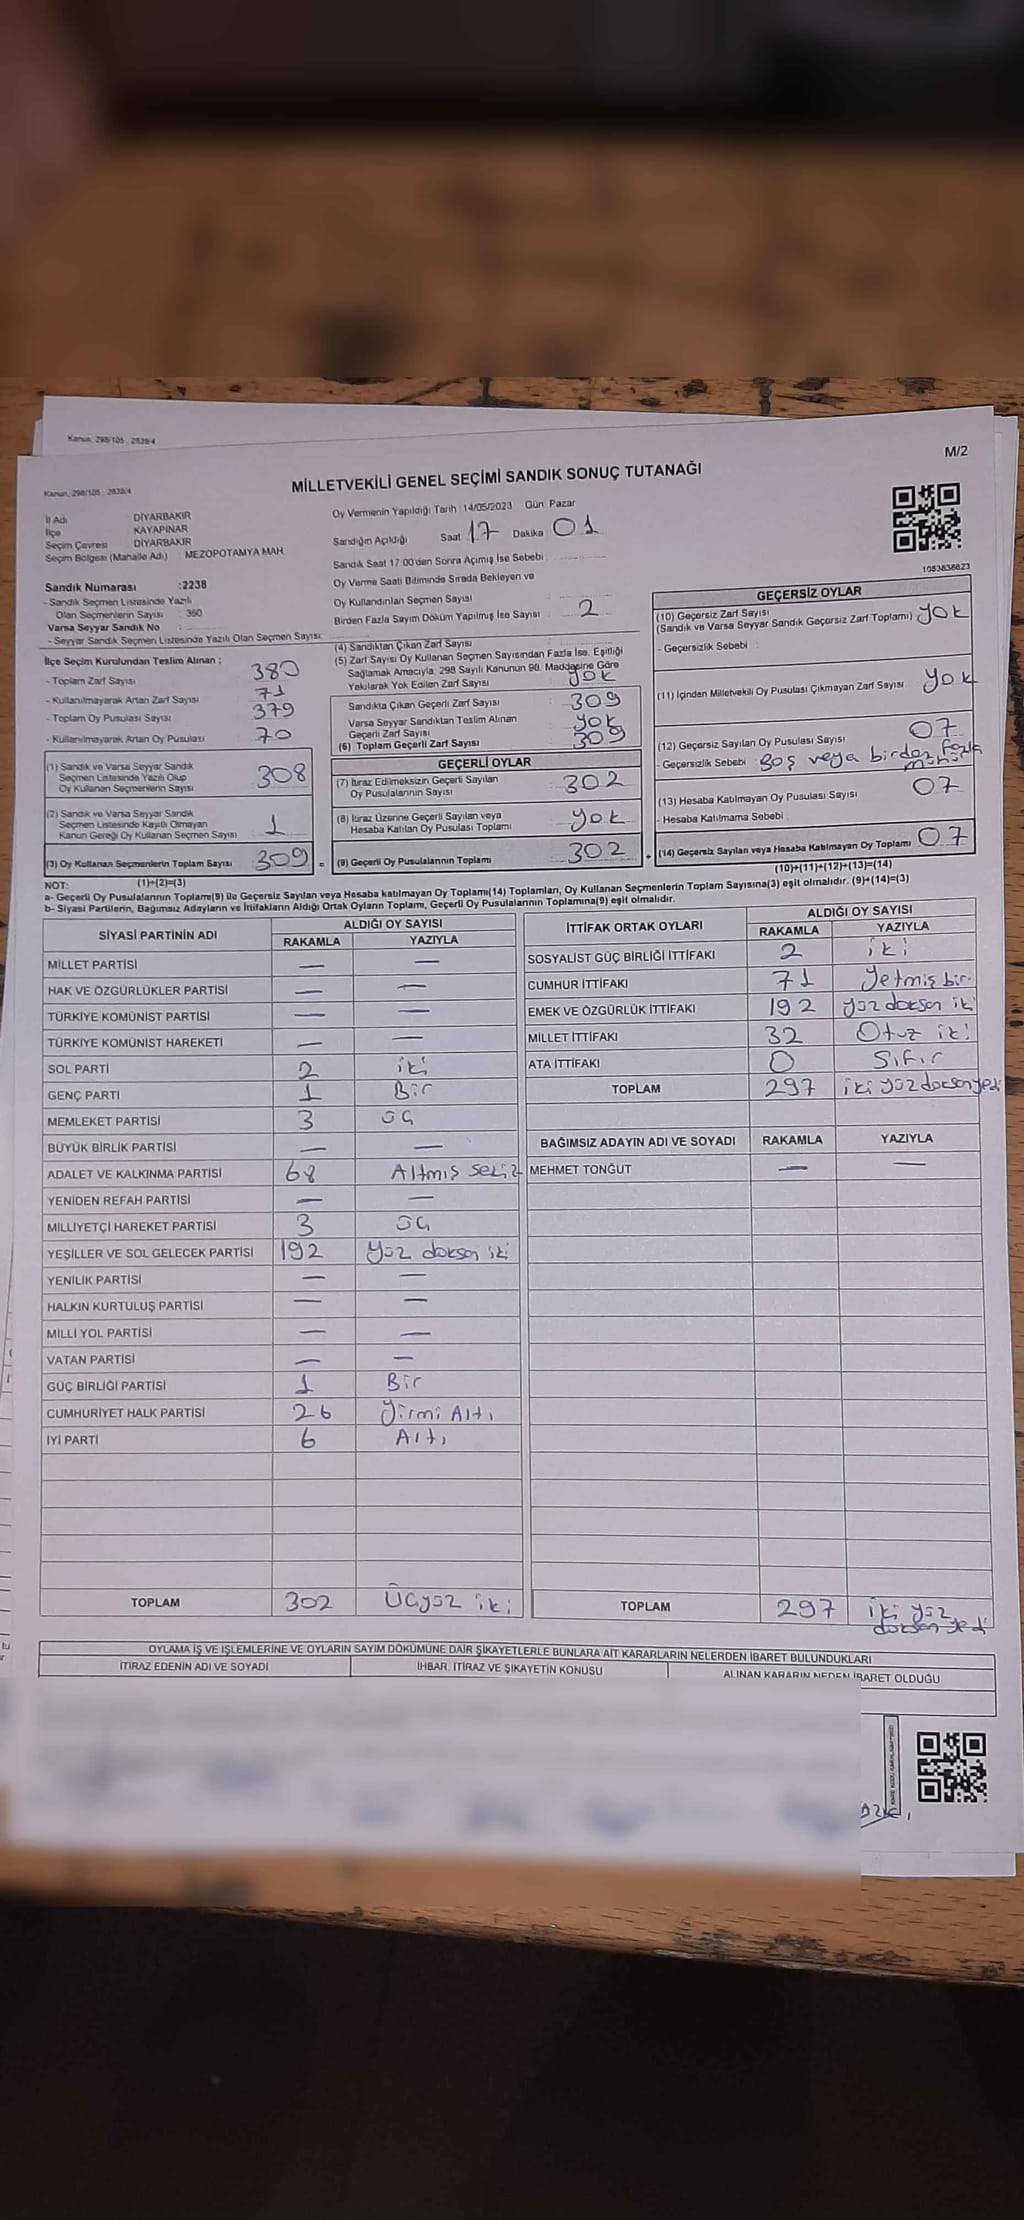 Kanun, 298/105 , 2839/4
M/2
Kanun, 298/105 , 2839/4
MİLLETVEKİLİ GENEL SEÇİMİ SANDIK SONUÇ TUTANAĞI
İl Adı : DİYARBAKIR
İlçe : KAYAPINAR
Seçim Çevresi : DİYARBAKIR
Seçim Bölgesi (Mahalle Adı) : MEZOPOTAMYA MAH.
Oy Vermenin Yapıldığı Tarih 14/05/2023 Gün Pazar
Sandığın Açıldığı Saat 17 Dakika 01
Sandık Saat 17.00'den Sonra Açımış İse Sebebi :
Oy Verme Saati Bitiminde Sırada Bekleyen ve
Oy Kullandırılan Seçmen Sayısı
Birden Fazla Sayım Döküm Yapılmış İse Sayısı : 2
1083838623
Sandık Numarası :2238
- Sandık Seçmen Listesinde Yazılı
Olan Seçmenlerin Sayısı : 360
Varsa Seyyar Sandık No :
- Seyyar Sandık Seçmen Listesinde Yazılı Olan Seçmen Sayısı:
İlçe Seçim Kurulundan Teslim Alınan :
- Toplam Zarf Sayısı : 380
- Kullanılmayarak Artan Zarf Sayısı : 71
- Toplam Oy Pusulası Sayısı : 379
- Kullanılmayarak Artan Oy Pusulası : 70
(1) Sandık ve Varsa Seyyar Sandık
Seçmen Listesinde Yazılı Olup
Oy Kullanan Seçmenlerin Sayısı : 308
(2) Sandık ve Varsa Seyyar Sandık
Seçmen Listesinde Kayıtlı Olmayan
Kanun Gereği Oy Kullanan Seçmen Sayısı : 1
(3) Oy Kullanan Seçmenlerin Toplam Sayısı : 309 =
(1)+(2)=(3)
(4) Sandıktan Çıkan Zarf Sayısı
(5) Zarf Sayısı Oy Kullanan Seçmen Sayısından Fazla İse, Eşitliği
Sağlamak Amacıyla, 298 Sayılı Kanunun 98. Maddesine Göre
Yakılarak Yok Edilen Zarf Sayısı : yok
Sandıkta Çıkan Geçerli Zarf Sayısı : 309
Varsa Seyyar Sandıktan Teslim Alınan
Geçerli Zarf Sayısı : yok
(6) Toplam Geçerli Zarf Sayısı : 309
GEÇERLİ OYLAR
(7) İtiraz Edilmeksizin Geçerli Sayılan
Oy Pusulalarının Sayısı : 302
(8) İtiraz Üzerine Geçerli Sayılan veya
Hesaba Katılan Oy Pusulası Toplamı : yok
(9) Geçerli Oy Pusulalarının Toplamı : 302 +
GEÇERSİZ OYLAR
(10) Geçersiz Zarf Sayısı
(Sandık ve Varsa Seyyar Sandık Geçersiz Zarf Toplamı) yok
- Geçersizlik Sebebi :
(11) İçinden Milletvekili Oy Pusulası Çıkmayan Zarf Sayısı yok
(12) Geçersiz Sayılan Oy Pusulası Sayısı : 07
- Geçersizlik Sebebi Boş veya birden fazla mühür
(13) Hesaba Katılmayan Oy Pusulası Sayısı : 07
- Hesaba Katılmama Sebebi :
(14) Geçersiz Sayılan veya Hesaba Katılmayan Oy Toplamı : 07
(10)+(11)+(12)+(13)=(14)
NOT:
a- Geçerli Oy Pusulalarının Toplamı(9) ile Geçersiz Sayılan veya Hesaba katılmayan Oy Toplamı(14) Toplamları, Oy Kullanan Seçmenlerin Toplam Sayısına(3) eşit olmalıdır. (9)+(14)=(3)
b- Siyasi Partilerin, Bağımsız Adayların ve İttifakların Aldığı Ortak Oyların Toplamı, Geçerli Oy Pusulalarının Toplamına(9) eşit olmalıdır.
SİYASİ PARTİNİN ADI ALDIĞI OY SAYISI
RAKAMLA YAZIYLA
MİLLET PARTİSİ — —
HAK VE ÖZGÜRLÜKLER PARTİSİ — —
TÜRKİYE KOMÜNİST PARTİSİ — —
TÜRKİYE KOMÜNİST HAREKETİ — —
SOL PARTİ 2 iki
GENÇ PARTİ 1 Bir
MEMLEKET PARTİSİ 3 üç
BÜYÜK BİRLİK PARTİSİ — —
ADALET VE KALKINMA PARTİSİ 68 Altmış sekiz
YENİDEN REFAH PARTİSİ — —
MİLLİYETÇİ HAREKET PARTİSİ 3 üç
YEŞİLLER VE SOL GELECEK PARTİSİ 192 yüz doksan iki
YENİLİK PARTİSİ — —
HALKIN KURTULUŞ PARTİSİ — —
MİLLİ YOL PARTİSİ — —
VATAN PARTİSİ — —
GÜÇ BİRLİĞİ PARTİSİ 1 Bir
CUMHURİYET HALK PARTİSİ 26 yirmi Altı
İYİ PARTİ 6 Altı
TOPLAM 302 Üçyüz iki
İTTİFAK ORTAK OYLARI ALDIĞI OY SAYISI
RAKAMLA YAZIYLA
SOSYALİST GÜÇ BİRLİĞİ İTTİFAKI 2 iki
CUMHUR İTTİFAKI 71 yetmiş bir
EMEK VE ÖZGÜRLÜK İTTİFAKI 192 yüz doksan iki
MİLLET İTTİFAKI 32 Otuz iki
ATA İTTİFAKI 0 Sıfır
TOPLAM 297 iki yüz doksan yedi
BAĞIMSIZ ADAYIN ADI VE SOYADI RAKAMLA YAZIYLA
MEHMET TONĞUT — —
TOPLAM 297 iki yüz doksan yedi
OYLAMA İŞ VE İŞLEMLERİNE VE OYLARIN SAYIM DÖKÜMÜNE DAİR ŞİKAYETLERLE BUNLARA AİT KARARLARIN NELERDEN İBARET BULUNDUKLARI
İTİRAZ EDENİN ADI VE SOYADI İHBAR, İTİRAZ VE ŞİKAYETİN KONUSU ALINAN KARARIN NEDEN İBARET OLDUĞU